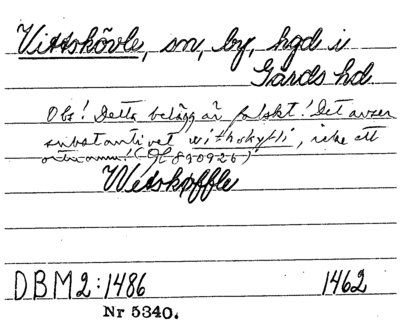 Vittskövle, sn, by, hgd i
Gärds hd.
Obs! Detta belägg är falskt! Det avser
substantivet withskyfli, icke ett
ortnamn! (GH 890926)
Vitskøffle
DBM 2:1486 1462
Nr 5340.